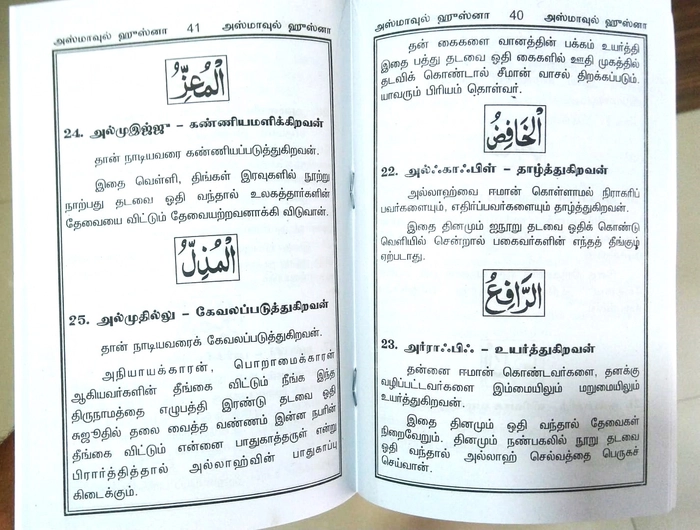 அஸ்மாவுல் ஹுஸ்னா 41 அஸ்மாவுல் ஹுஸ்னா
الْمُعِزُّ
24. அல்முஇஜ்ஜு – கண்ணியமளிக்கிறவன்
தான் நாடியவரை கண்ணியப்படுத்துகிறவன்.
இதை வெள்ளி, திங்கள் இரவுகளில் நூற்று
நாற்பது தடவை ஓதி வந்தால் உலகத்தார்களின்
தேவையை விட்டும் தேவையற்றவனாக்கி விடுவான்.
الْمُذِلُّ
25. அல்முதில்லு – கேவலப்படுத்துகிறவன்
தான் நாடியவரைக் கேவலப்படுத்துகிறவன்.
அநியாயக்காரன், பொறாமைக்காரன்
ஆகியவர்களின் தீங்கை விட்டும் நீங்க இந்த
திருநாமத்தை எழுபத்தி இரண்டு தடவை ஓதி
சுஜூதில் தலை வைத்த வண்ணம் இன்ன நபரின்
தீங்கை விட்டும் என்னை பாதுகாத்தருள் என்று
பிரார்த்தித்தால் அல்லாஹ்வின் பாதுகாப்பு
கிடைக்கும்.
அஸ்மாவுல் ஹுஸ்னா 40 அஸ்மாவுல் ஹுஸ்னா
தன் கைகளை வானத்தின் பக்கம் உயர்த்தி
இதை பத்து தடவை ஓதி கைகளில் ஊதி முகத்தில்
தடவிக் கொண்டால் சீமான் வாசல் திறக்கப்படும்.
யாவரும் பிரியம் கொள்வர்.
الْخَافِضُ
22. அல்ஃகாஃபிள் – தாழ்த்துகிறவன்
அல்லாஹ்வை ஈமான் கொள்ளாமல் நிராகரிப்
பவர்களையும், எதிர்ப்பவர்களையும் தாழ்த்துகிறவன்.
இதை தினமும் ஐநூறு தடவை ஓதிக் கொண்டு
வெளியில் சென்றால் பகைவர்களின் எந்தத் தீங்கும்
ஏற்படாது.
الرَّافِعُ
23. அர்ராஃபிஃ – உயர்த்துகிறவன்
தன்னை ஈமான் கொண்டவர்களை, தனக்கு
வழிப்பட்டவர்களை இம்மையிலும் மறுமையிலும்
உயர்த்துகிறவன்.
இதை தினமும் ஓதி வந்தால் தேவைகள்
நிறைவேறும். தினமும் நண்பகலில் நூறு தடவை
ஓதி வந்தால் அல்லாஹ் செல்வத்தை பெருகச்
செய்வான்.